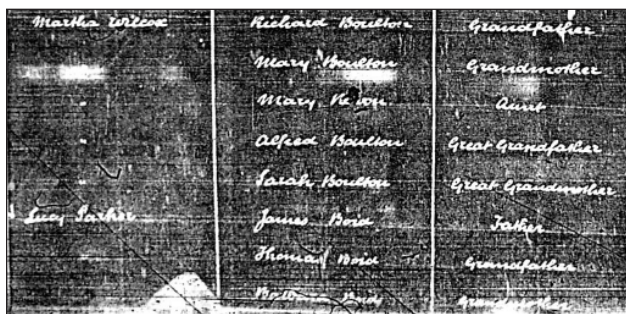 Martha Wilcox Richard Boulton Grandfather
Mary Boulton Grandmother
Mary Aunt
Alfred Boulton Great Grandfather
Sarah Boulton Great Grandmother
Lucy Parker James Boid Father
Thomas Boid Grandfather
Grandmother